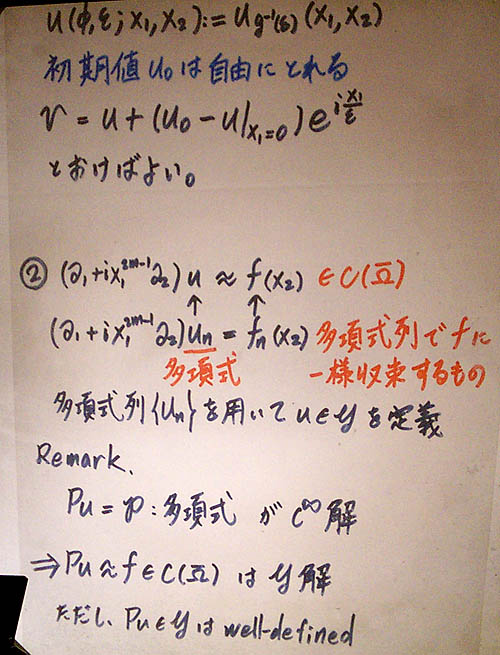 u(φ,ε;x₁,x₂):=u_{g⁻¹(ε)}(x₁,x₂)
初期値 u₀ は自由にとれる
v = u + (u₀ - u|_{x₁=0}) e^{i x₁/ε}
とおけばよい。
② (∂₁+ix₁^{2m-1}∂₂)u ≈ f(x₂) ∈ C(Ω̅)
↑ ↑
(∂₁+ix₁^{2m-1}∂₂)u_n = f_n(x₂) 多項式列で f に
多項式 一様収束するもの
多項式列{u_n}を用いて u∈y を定義
Remark.
Pu = p : 多項式 が C^∞ 解
⇒ Pu ≈ f ∈ C(Ω̅) は y 解
ただし、Pu∈y は well-defined